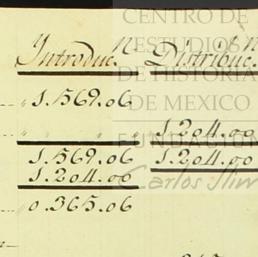 CENTRO DE
ESTUDIOS
DE HISTORIA
DE MEXICO
FUNDACIÓN
Carlos Slim
Introduc.n Distribuc.n
1.569.06
" " " 1.204.00
1.569.06 1.204.00
1.204.00
0.365.06